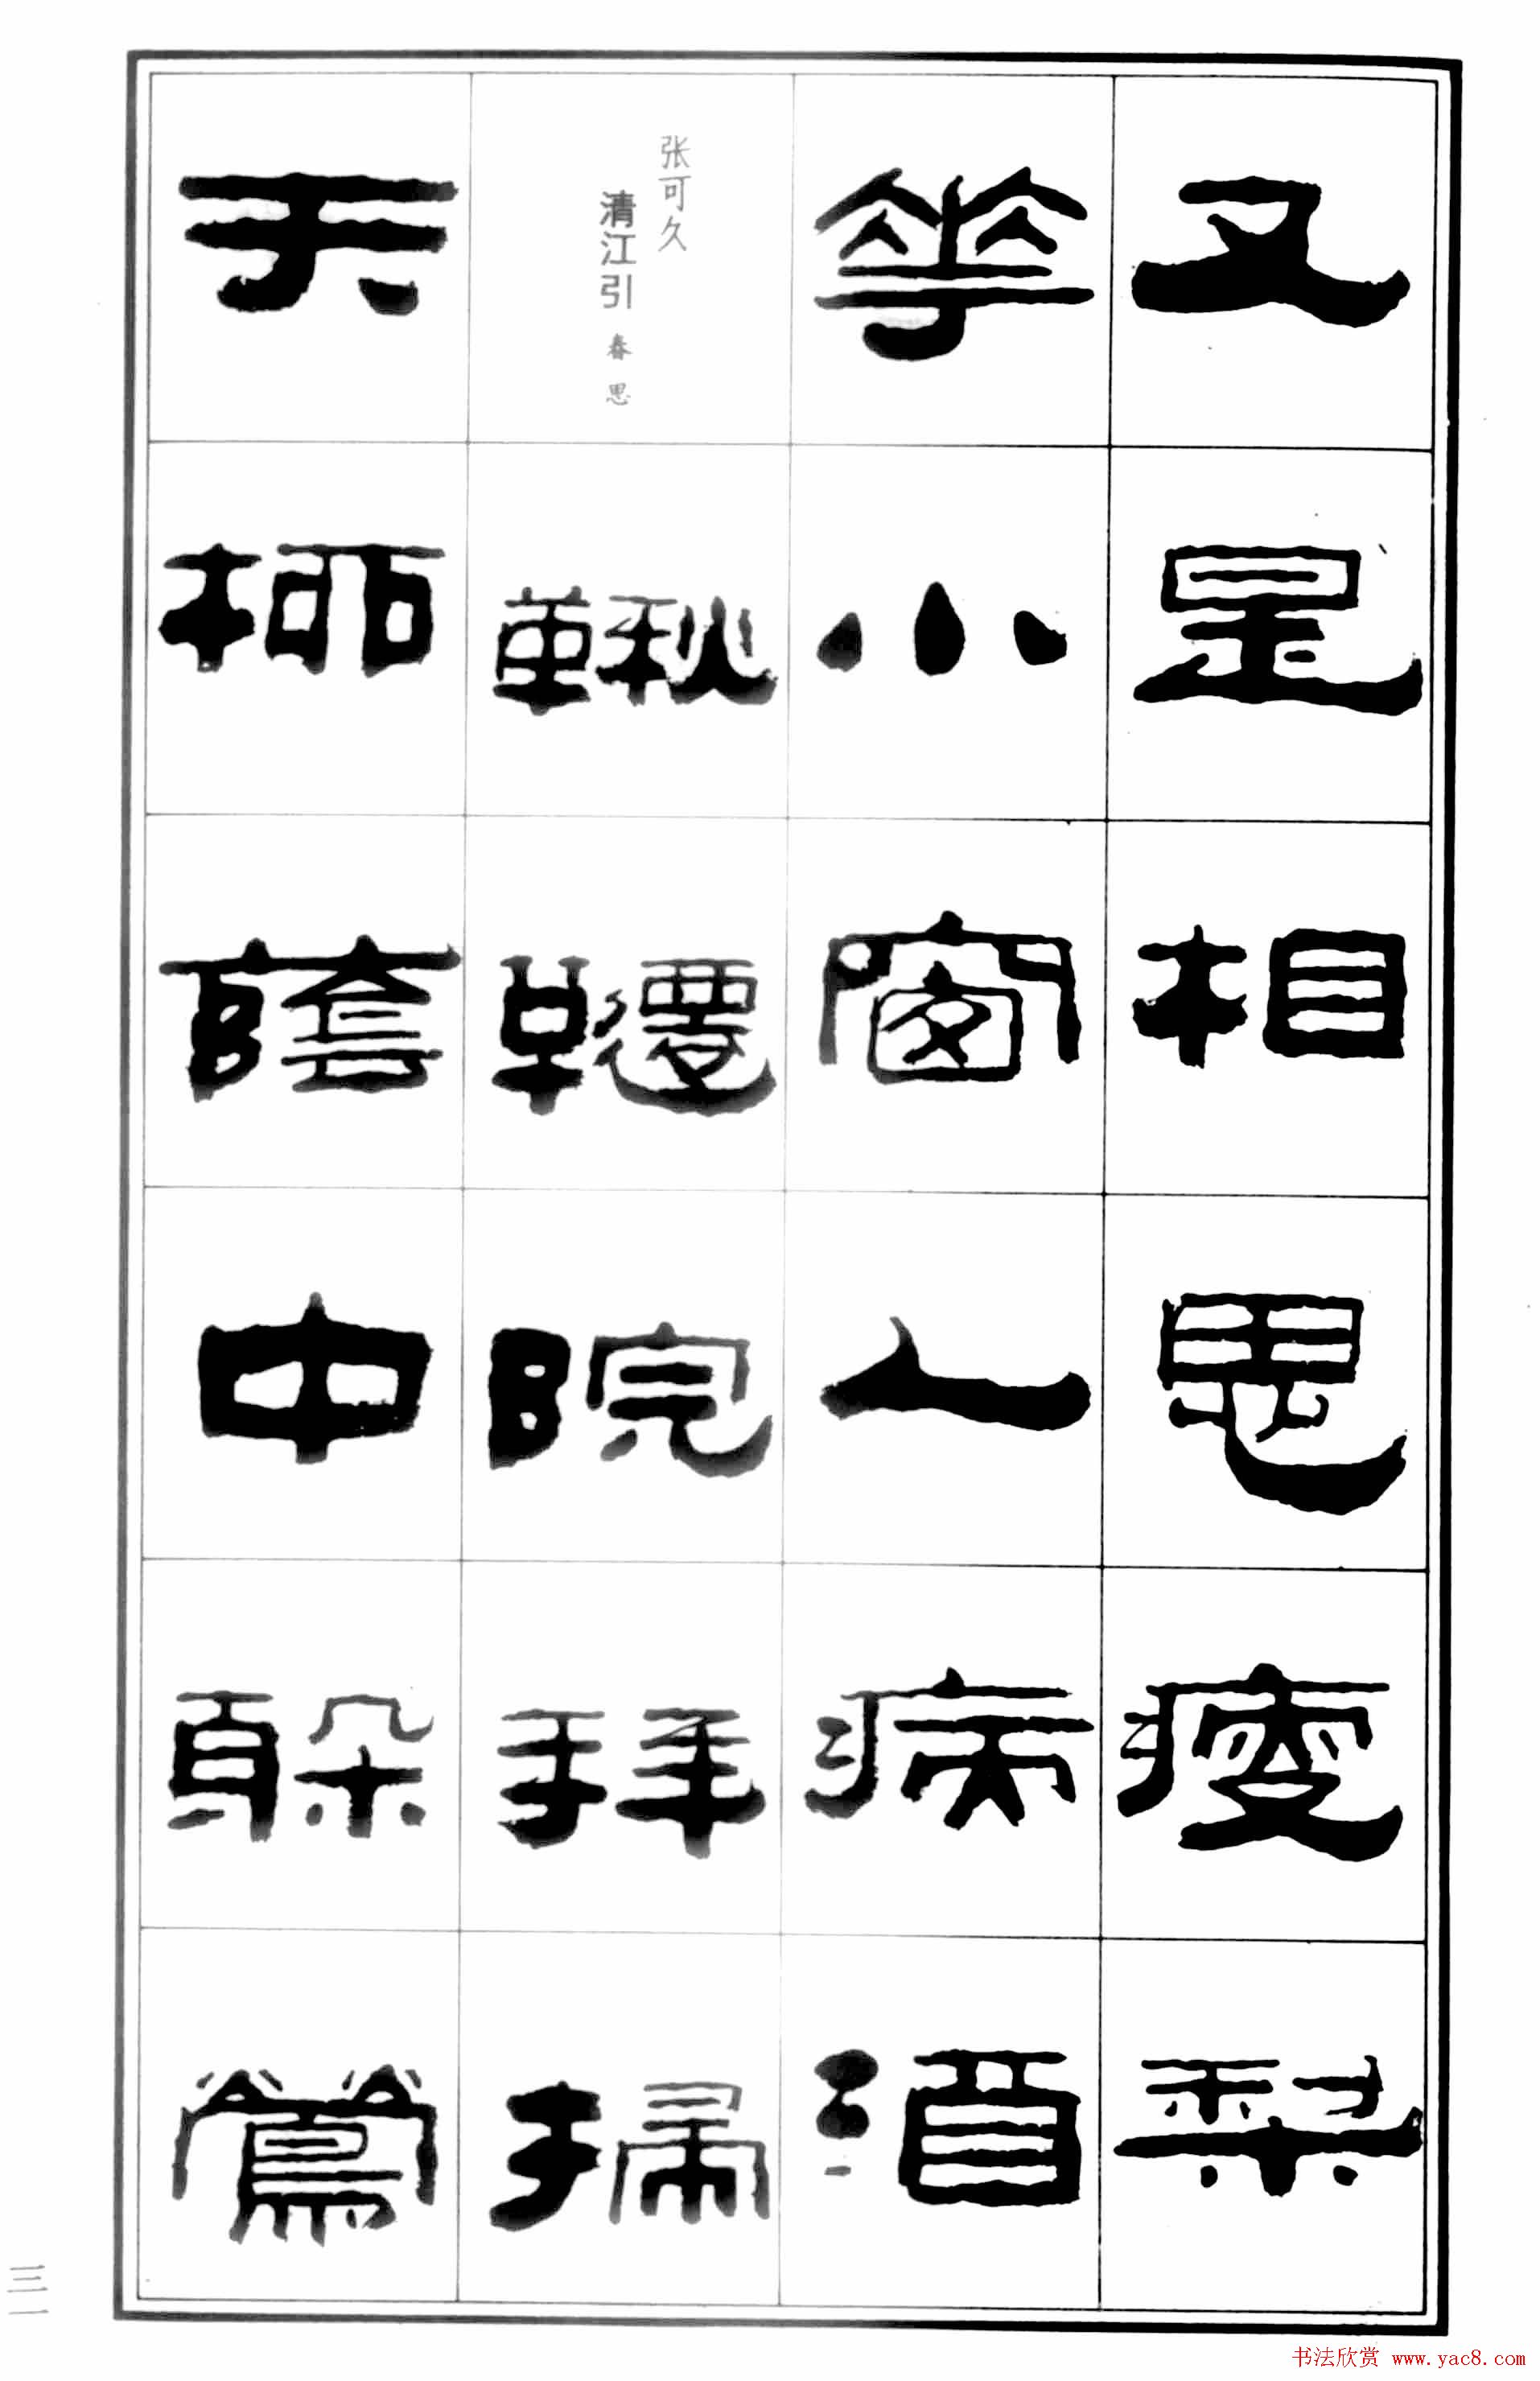 又是相思瘦梨
花小窗人病酒
张可久
清江引 春思
鞦韆院拜掃
天柳蔭中躲鶯
三一
书法欣赏 www.yac8.com